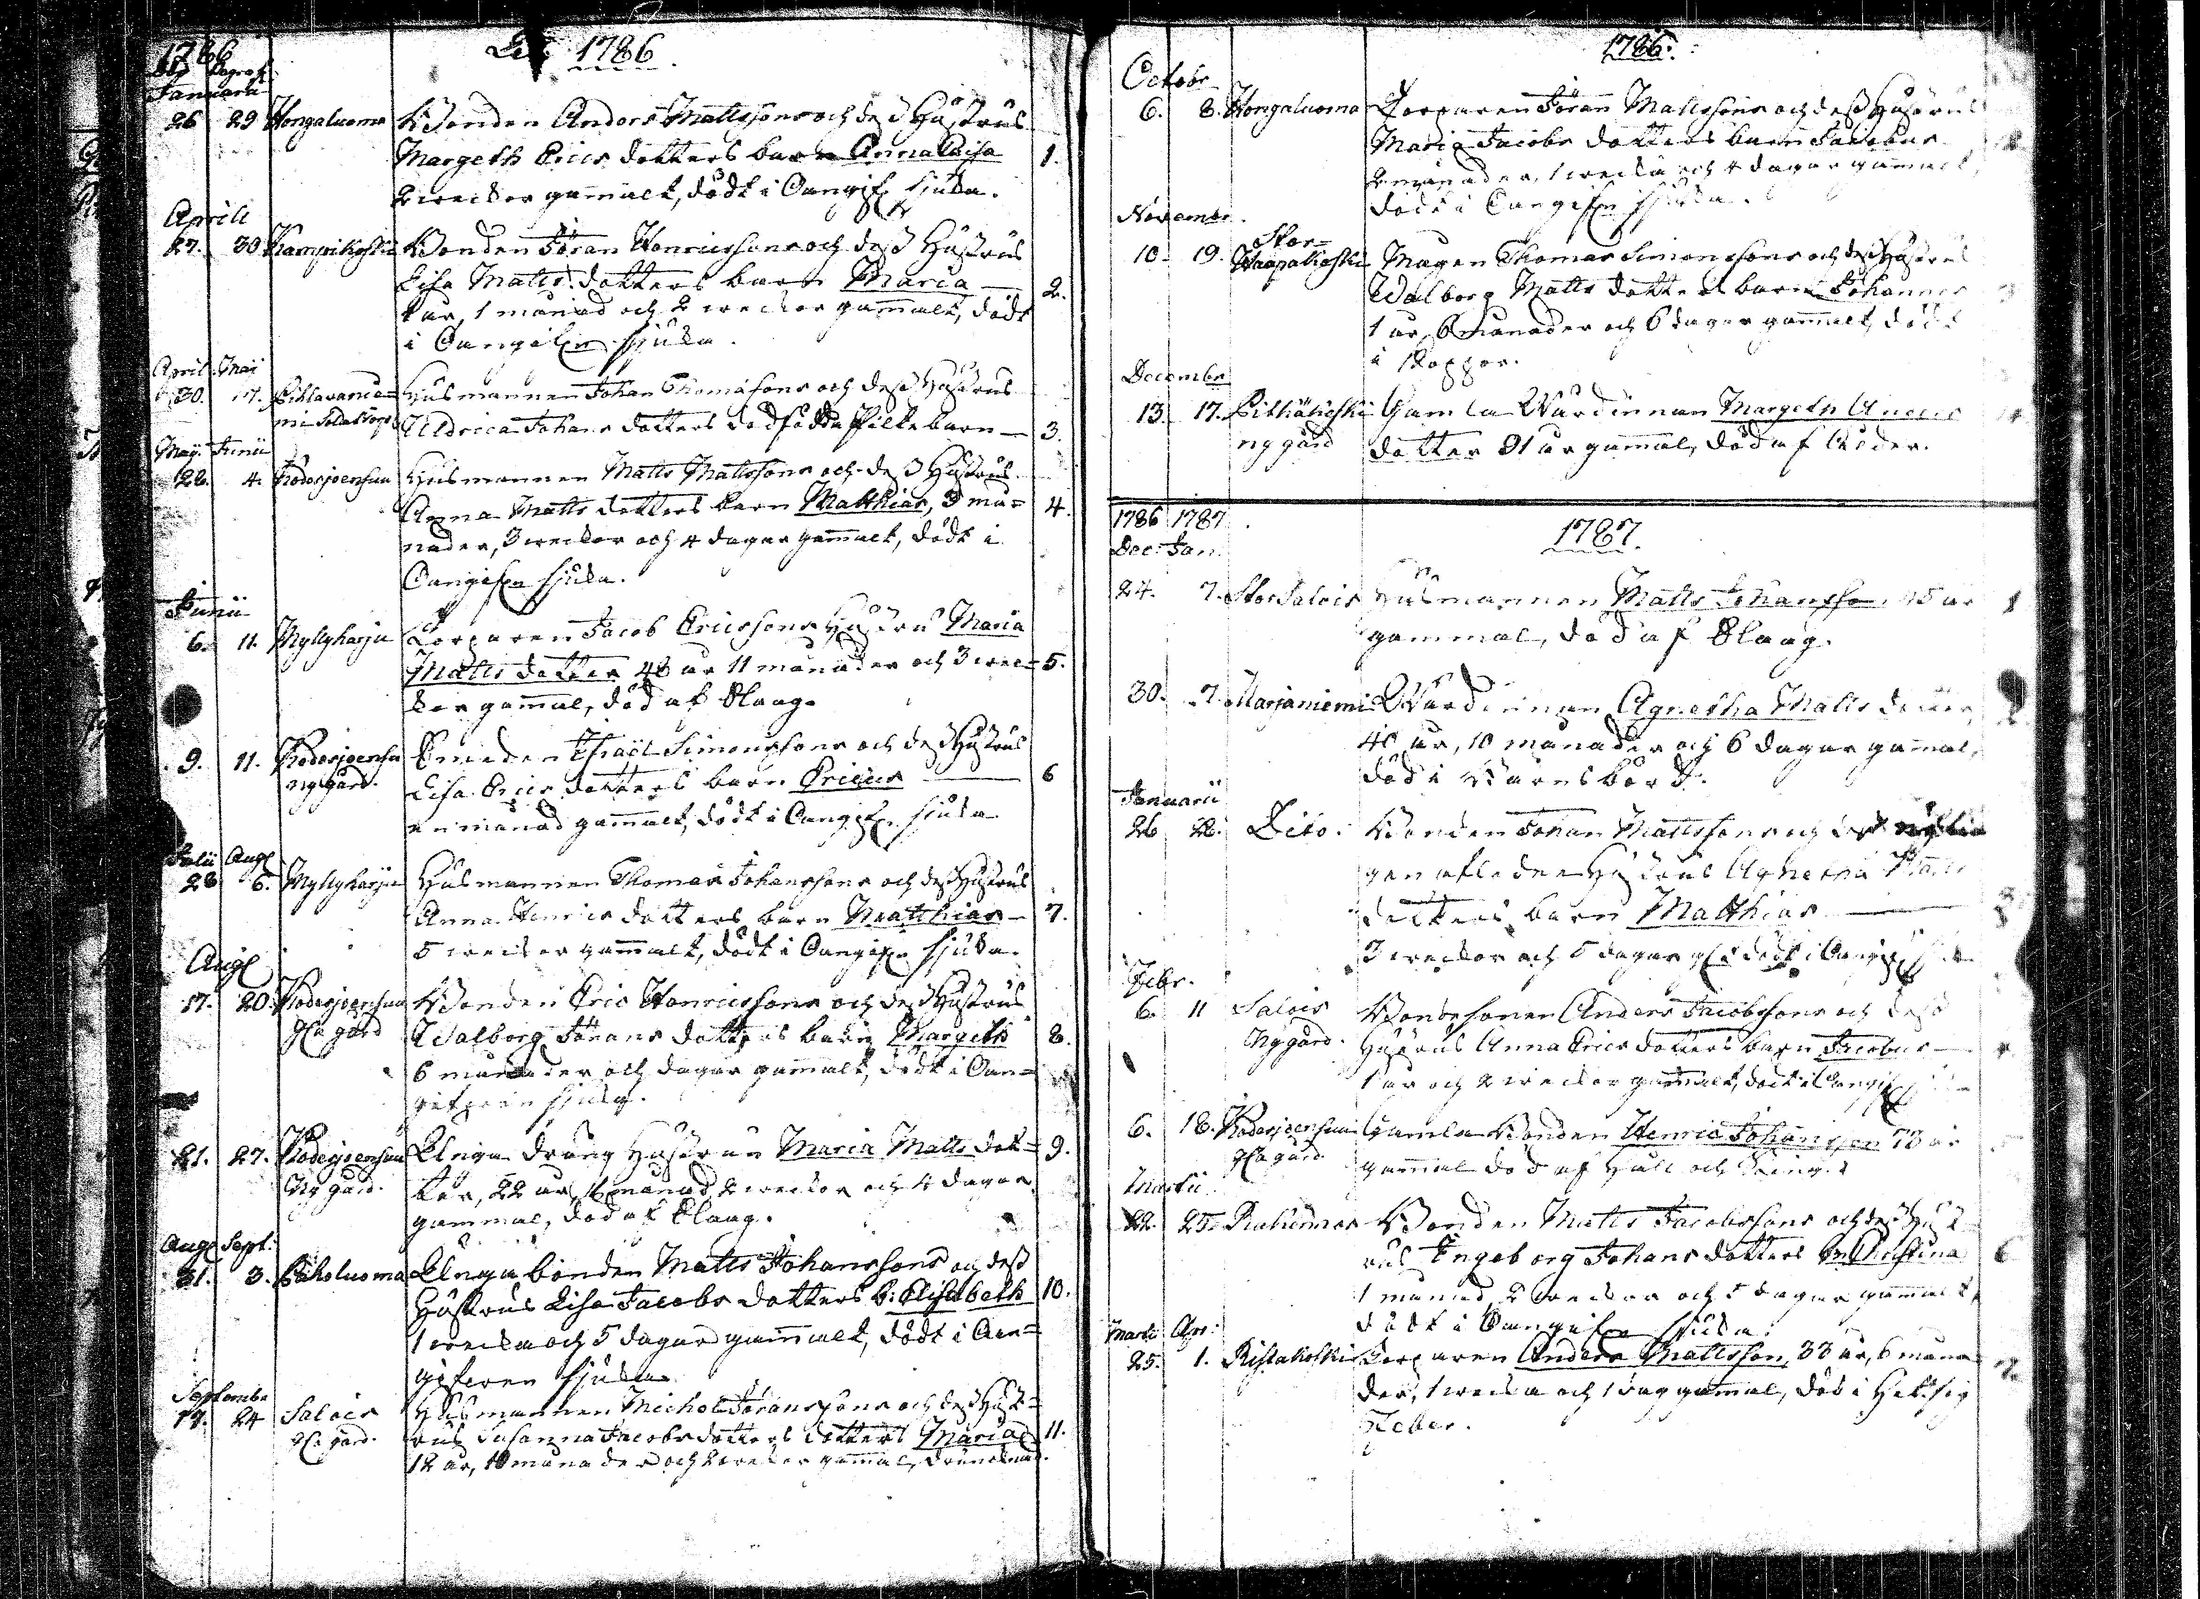 1786
Död Begrafn
Januarii
1786
26 29 Hongaluoma Bonden Anders Mattssons och dess Hustrus
Margeth Erics dotters barn Anna Caisa 1.
2 weckor gammalt, dödt i Oangifn sjuka.
Aprili
27. 30 Kampikoski Bonden Jöran Henricssons och dess Hustrus
Lisa Matts dotters barn Maria — 2.
år, 1 månad och 2 weckor gammalt, dödt
i Oangifn sjuka.
April. Maij
30. 17. Husmannen Johan Thomæsons och dess Hustrus
Uldrica Johans dotters dödfödda flicke barn — 3.
Maij. Junii
22. 4. Kodesjoensuu Husmannen Matts Mattssons och dess Hustrus
Anna Matts dotters barn Matthias, 3 må= 4.
nader, 3 weckor och 4 dagar gammalt, dödt i
Oangifn sjuka.
Junii
6. 11. Myllyharju Torparen Jacob Ericssons Hustru Maria
Matts dotter 48 år 11 månader och 3 wec= 5.
kor gammal, död af Slaag.
9. 11. Kodesjoensuu
nygård.
Smeden Israël Simonssons och dess Hustrus
Lisa Erics dotters barn Ericus — 6
en månad gammalt, dödt i Oangifn sjuka
Julii Aug
28 6. Myllyharju Husmannen Thomas Johanssons och dess Hustrus
Anna Henrics dotters barn Matthias — 7.
5 weckor gammalt, dödt i Oangifn sjuka.
Aug
17. 20. Kodesjoensuu
gla gård
Bonden Eric Henricssons och dess Hustrus
Walborg Jörans dotters barn Margeth 8.
6 månader och dagar gammalt, dödt i Oan=
gifven sjuka.
21. 27. Kodesjoensuu
Ny gård.
Unga dräng Hustrun Maria Matts dot= 9.
ter, 22 år, 1 månad, 2 weckor och 4 dagar
gammal, död af Slaag.
Aug Sept.
31. 3. Pakoluoma Unga bonden Matts Johanssons och dess
Hustrus Lisa Jacobs dotters b: Elisabeth 10.
1 wecka och 5 dagar gammalt, dödt i Oan=
gifven sjuka
Septembr
17. 24 Salois
gla gård.
Husmannen Michel Jöranssons och dess Hust=
rus Susanna Jacobs dotters dotters Maria 11.
12 år, 10 månader och weckor gammal, drunknad.
1786.
Octobr
6. 8. Hongaluoma Torparen Jöran Mattssons och dess Hustrus
Maria Jacobs dotters barn Jacobus
2 månader, 1 wecka och 4 dagar gammalt,
dödt i Oangifn sjuka.
Novembr.
10. 19. Stor=
Haapakoski
Magen Thomas Simonssons och dess Hustrus
Walborg Matts dotters barn Johannes
1 år, 6 månader och 6 dagar gammalt, dödt
i Koppor.
Decembr
13. 17. Pitkäkoski
ny gård
Gamla Wärdinnan Margeth
dotter 81 år gammal, död af Ålder.
1786 1787
Dec. Jan.
1787.
24. 7. Stor Salois Husmannen Matts Johansson, 45 år 1
gammal, död af Slaag.
30. 7. Marjaniemi Wärdinnan Agnetha Matts dotter,
40 år, 10 månader och 6 dagar gammal,
död i Barnsbörd.
Januarii
26 28. Dito. Bonden Johan Mattssons och dess nyli
gen afledne Hustrus Agnetha Matts
dotters barn Matthias —
3 weckor och 5 dagar g:l dödt i Oangifn
Febr.
6. 11 Salois
Ny gård.
Bondesonen Anders Jacobssons och dess
Hustrus Anna Erics dotters barn Jacobus —
1 år och 2 weckor gammalt, dödt i Oangifn
6. 18. Kodesjoensuu
gla gård
Gamla Bonden Henric Johansson 73 år
gammal död af Håll och Sting.
Martii
22. 25. Bonden Matts Jacobssons och dess Hust
rus Ingeborg Johans dotters b. Christina 6
1 månad, 2 weckor och 5 dagar gammalt,
dödt i Oangifn sjuka.
Marti Apr:
25. 1. Ristakoski Torparen Anders Mattsson, 33 år, 6 måna 7.
der, 1 wecka och 1 dag gammal, död i Hetsig
Feber.